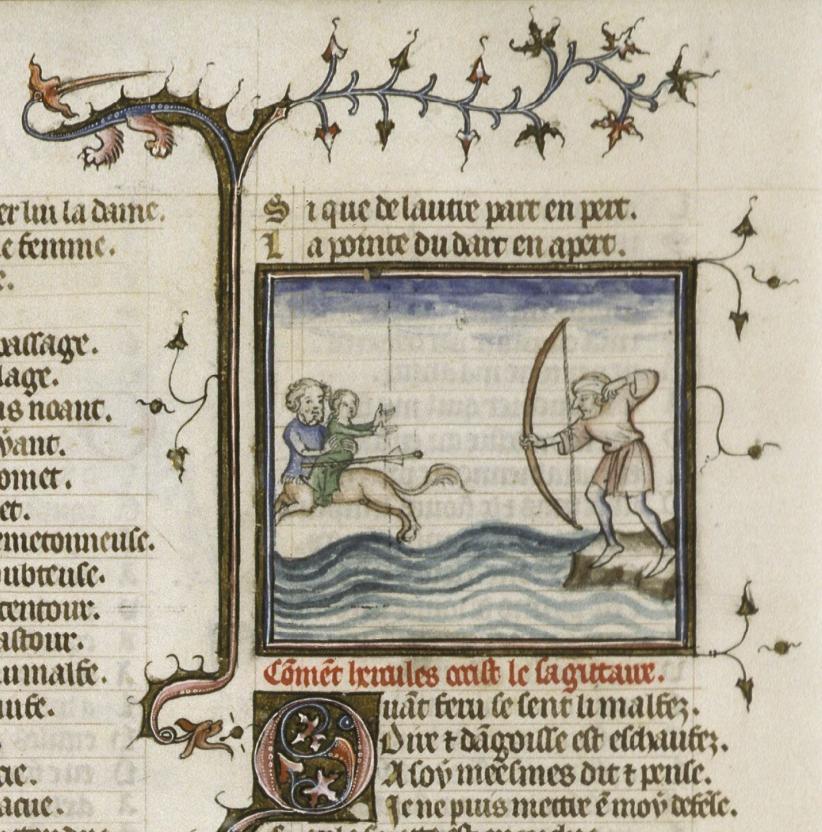 er lui la dame.
e femme.
e.
passage.
lage.
us noant.
yant.
omet.
et.
emetonneuse.
oubteuse.
tentour.
astour.
u malfe.
aufe.
cie.
acue.
Si que de lautre part en pert.
La pointe du dart en apert.
Comēt hercules occist le sagittaire.
Quāt feru se sent li malfez.
Dire ⁊ dāgoisse est eschaufez.
A soy meesmes dit ⁊ pense.
Je ne puis mettre ē moy defēse.